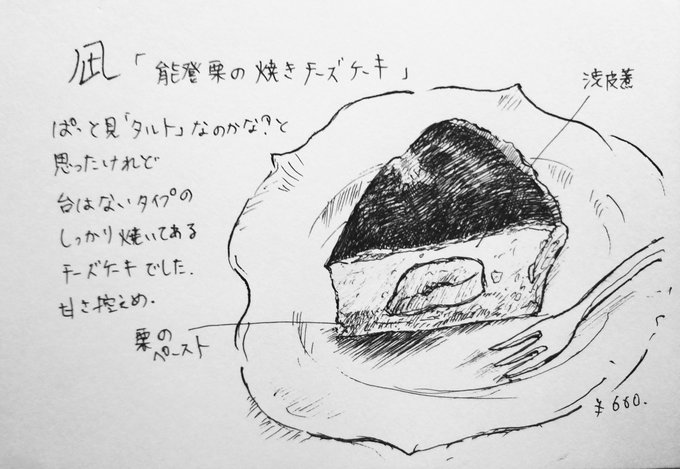 凪「能登栗の焼きチーズケーキ」
渋皮煮
ぱっと見「タルト」なのかな?と
思ったけれど
台はないタイプの
しっかり焼いてある
チーズケーキでした.
甘さ控えめ.
栗の
ペースト
¥660.